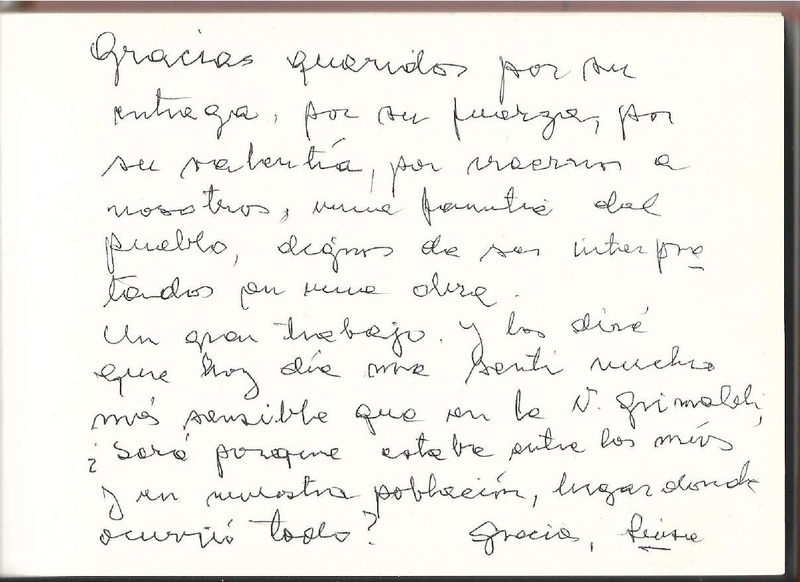 Gracias queridos por su
entrega, por su fuerza, por
su valentía, por vernos a
nosotros, una familia del
pueblo, dignos de ser interpre
tados en una obra.
Un gran trabajo. Y les diré
que hoy día me sentí mucho
más sensible que en la V. Grimaldi,
¿Será porque estaba entre los míos
y en nuestra población, lugar donde
ocurrió todo? Gracias,